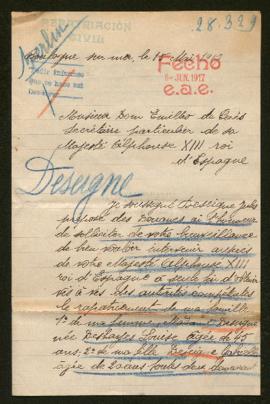 28.329
REPATRIACIÓN
CIVIL
Berlin
Boulogne sur mer, le 1 Mai 1917
Fecho
6- JUN. 1917
e.a.e.
Monsieur Dom Emilio de
Secrétaire particulier de sa
Majesté Alphonse XIII roi
d'Espagne
Deseigne
Je soussigné Deseigne Jules
préposé des Douanes ai l'honneur
de solliciter de votre bienveillance
de bien vouloir intervenir auprès
de votre Majesté Alphonse XIII
roi d'Espagne à seule fin d'obtenir
vis à vis des autorités compétentes
le rapatriement de ma famille
1º de ma femme Madame Deseigne
née Louise âgée de 45
ans, 2º de ma fille Deseigne
âgée de 20 ans toutes deux demeurant